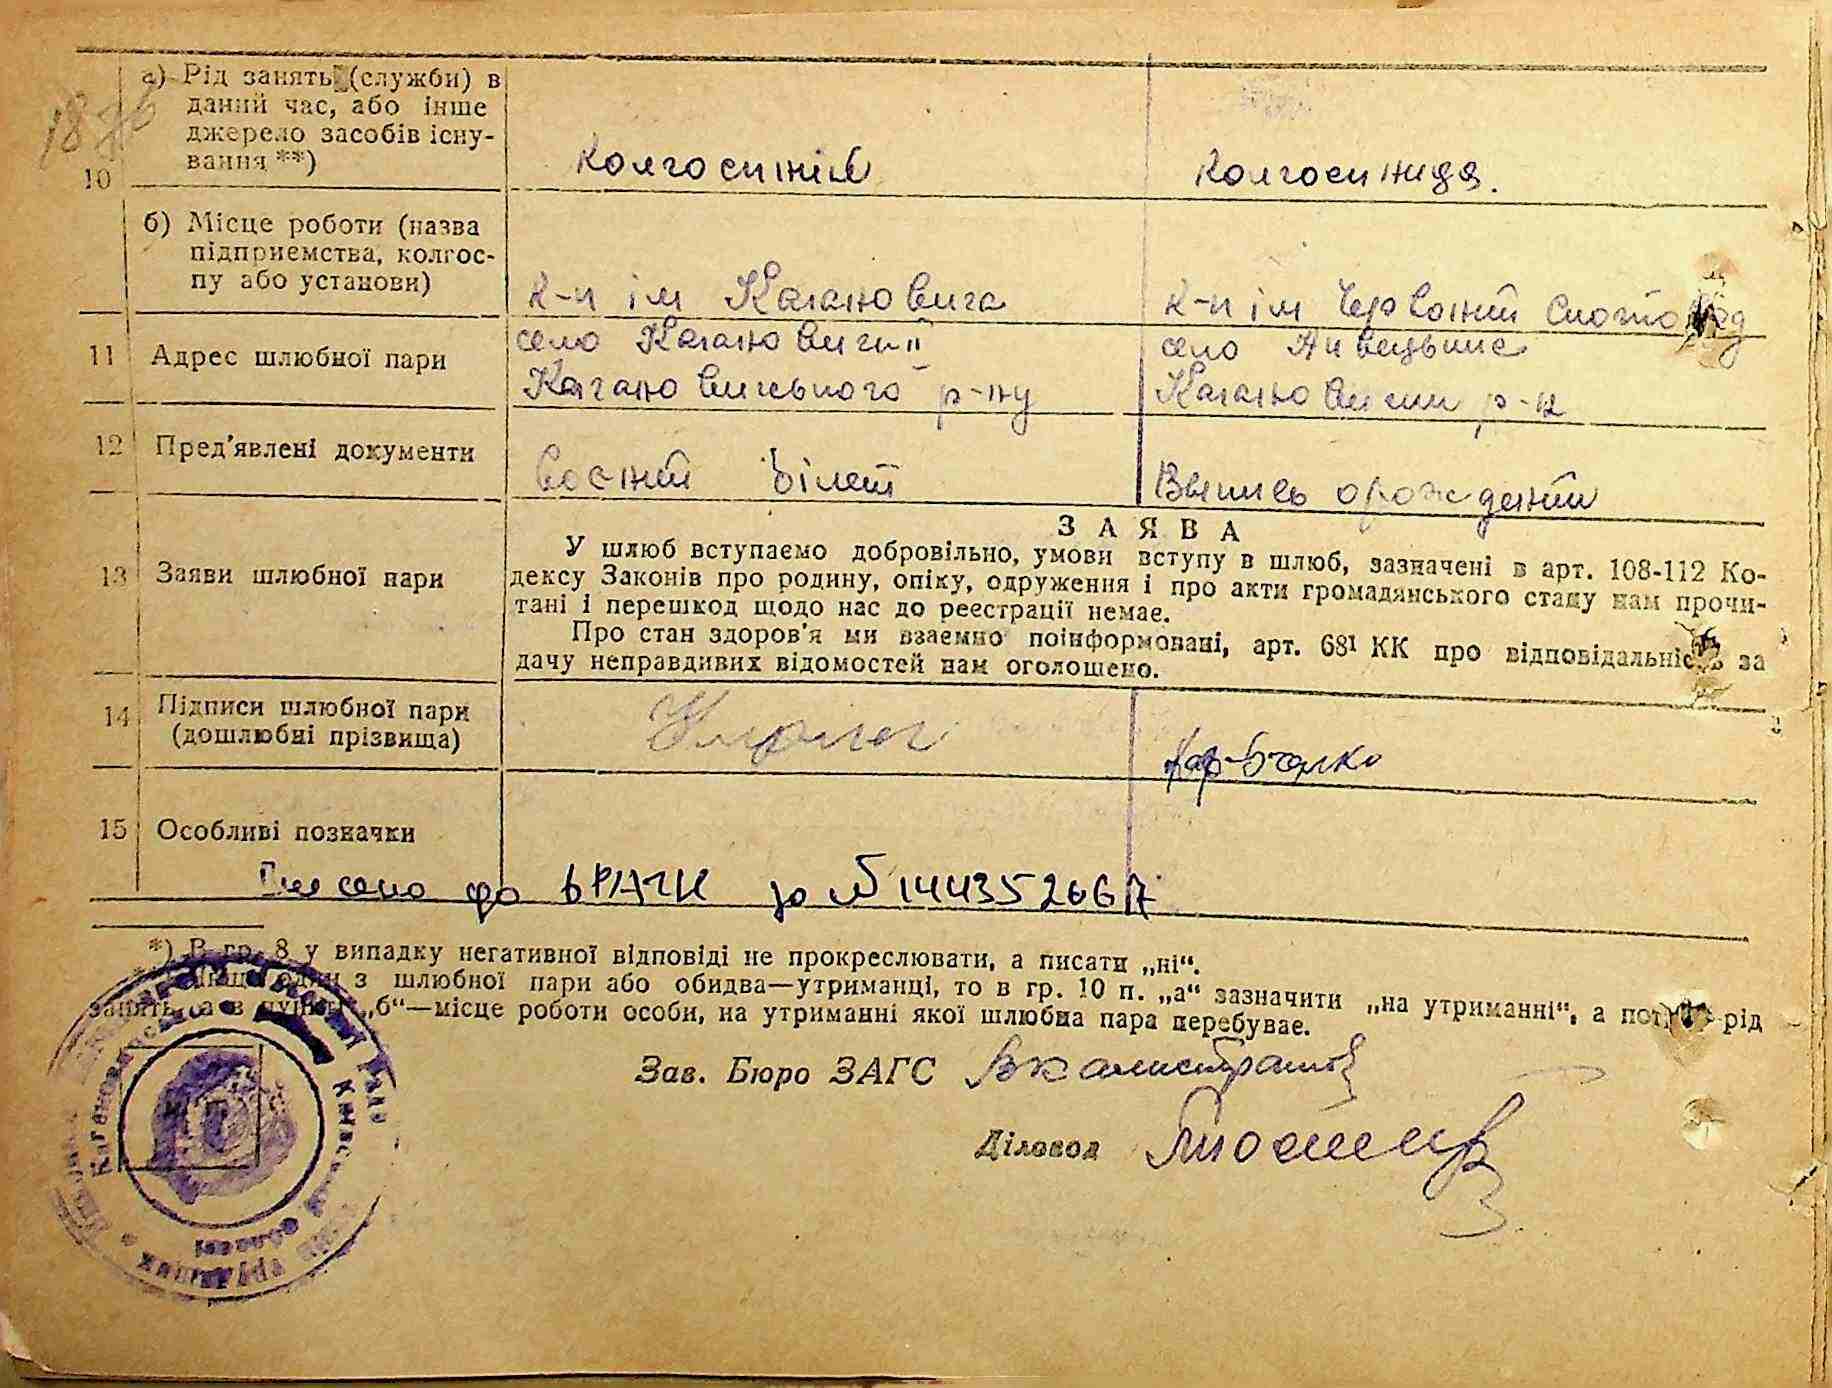 а) Рід занять (служби) в
даний час, або інше
джерело засобів існу-
вання **)
10
колгоспник
колгоспниця.
б) Місце роботи (назва
підприємства, колгос-
пу або установи)
к-п ім Кагановича
к-п ім Червоний
11 Адрес шлюбної пари
село Кагановичи
село
Кагановицького р-ну
р-н
12 Пред'явлені документи
Воєний білет
Выпись орождении
ЗАЯВА
13 Заяви шлюбної пари
У шлюб вступаємо добровільно, умови вступу в шлюб, зазначені в арт. 108-112 Ко-
дексу Законів про родину, опіку, одруження і про акти громадянського стану нам прочи-
тані і перешкод щодо нас до реєстрації немає.
Про стан здоров'я ми взаємно поінформовані, арт. 68¹ КК про відповідальність за
дачу неправдивих відомостей нам оголошено.
14 Підписи шлюбної пари
(дошлюбні прізвища)
15 Особливі позначки
Внесено до ДРАЦС за №
*) В гр. 8 у випадку негативної відповіді не прокреслювати, а писати „ні“.
Якщо один з шлюбної пари або обидва—утриманці, то в гр. 10 п. „а“ зазначити „на утриманні“, а потім рід
занять, а в пункті „б“—місце роботи особи, на утриманні якої шлюбна пара перебуває.
Зав. Бюро ЗАГС
Діловод